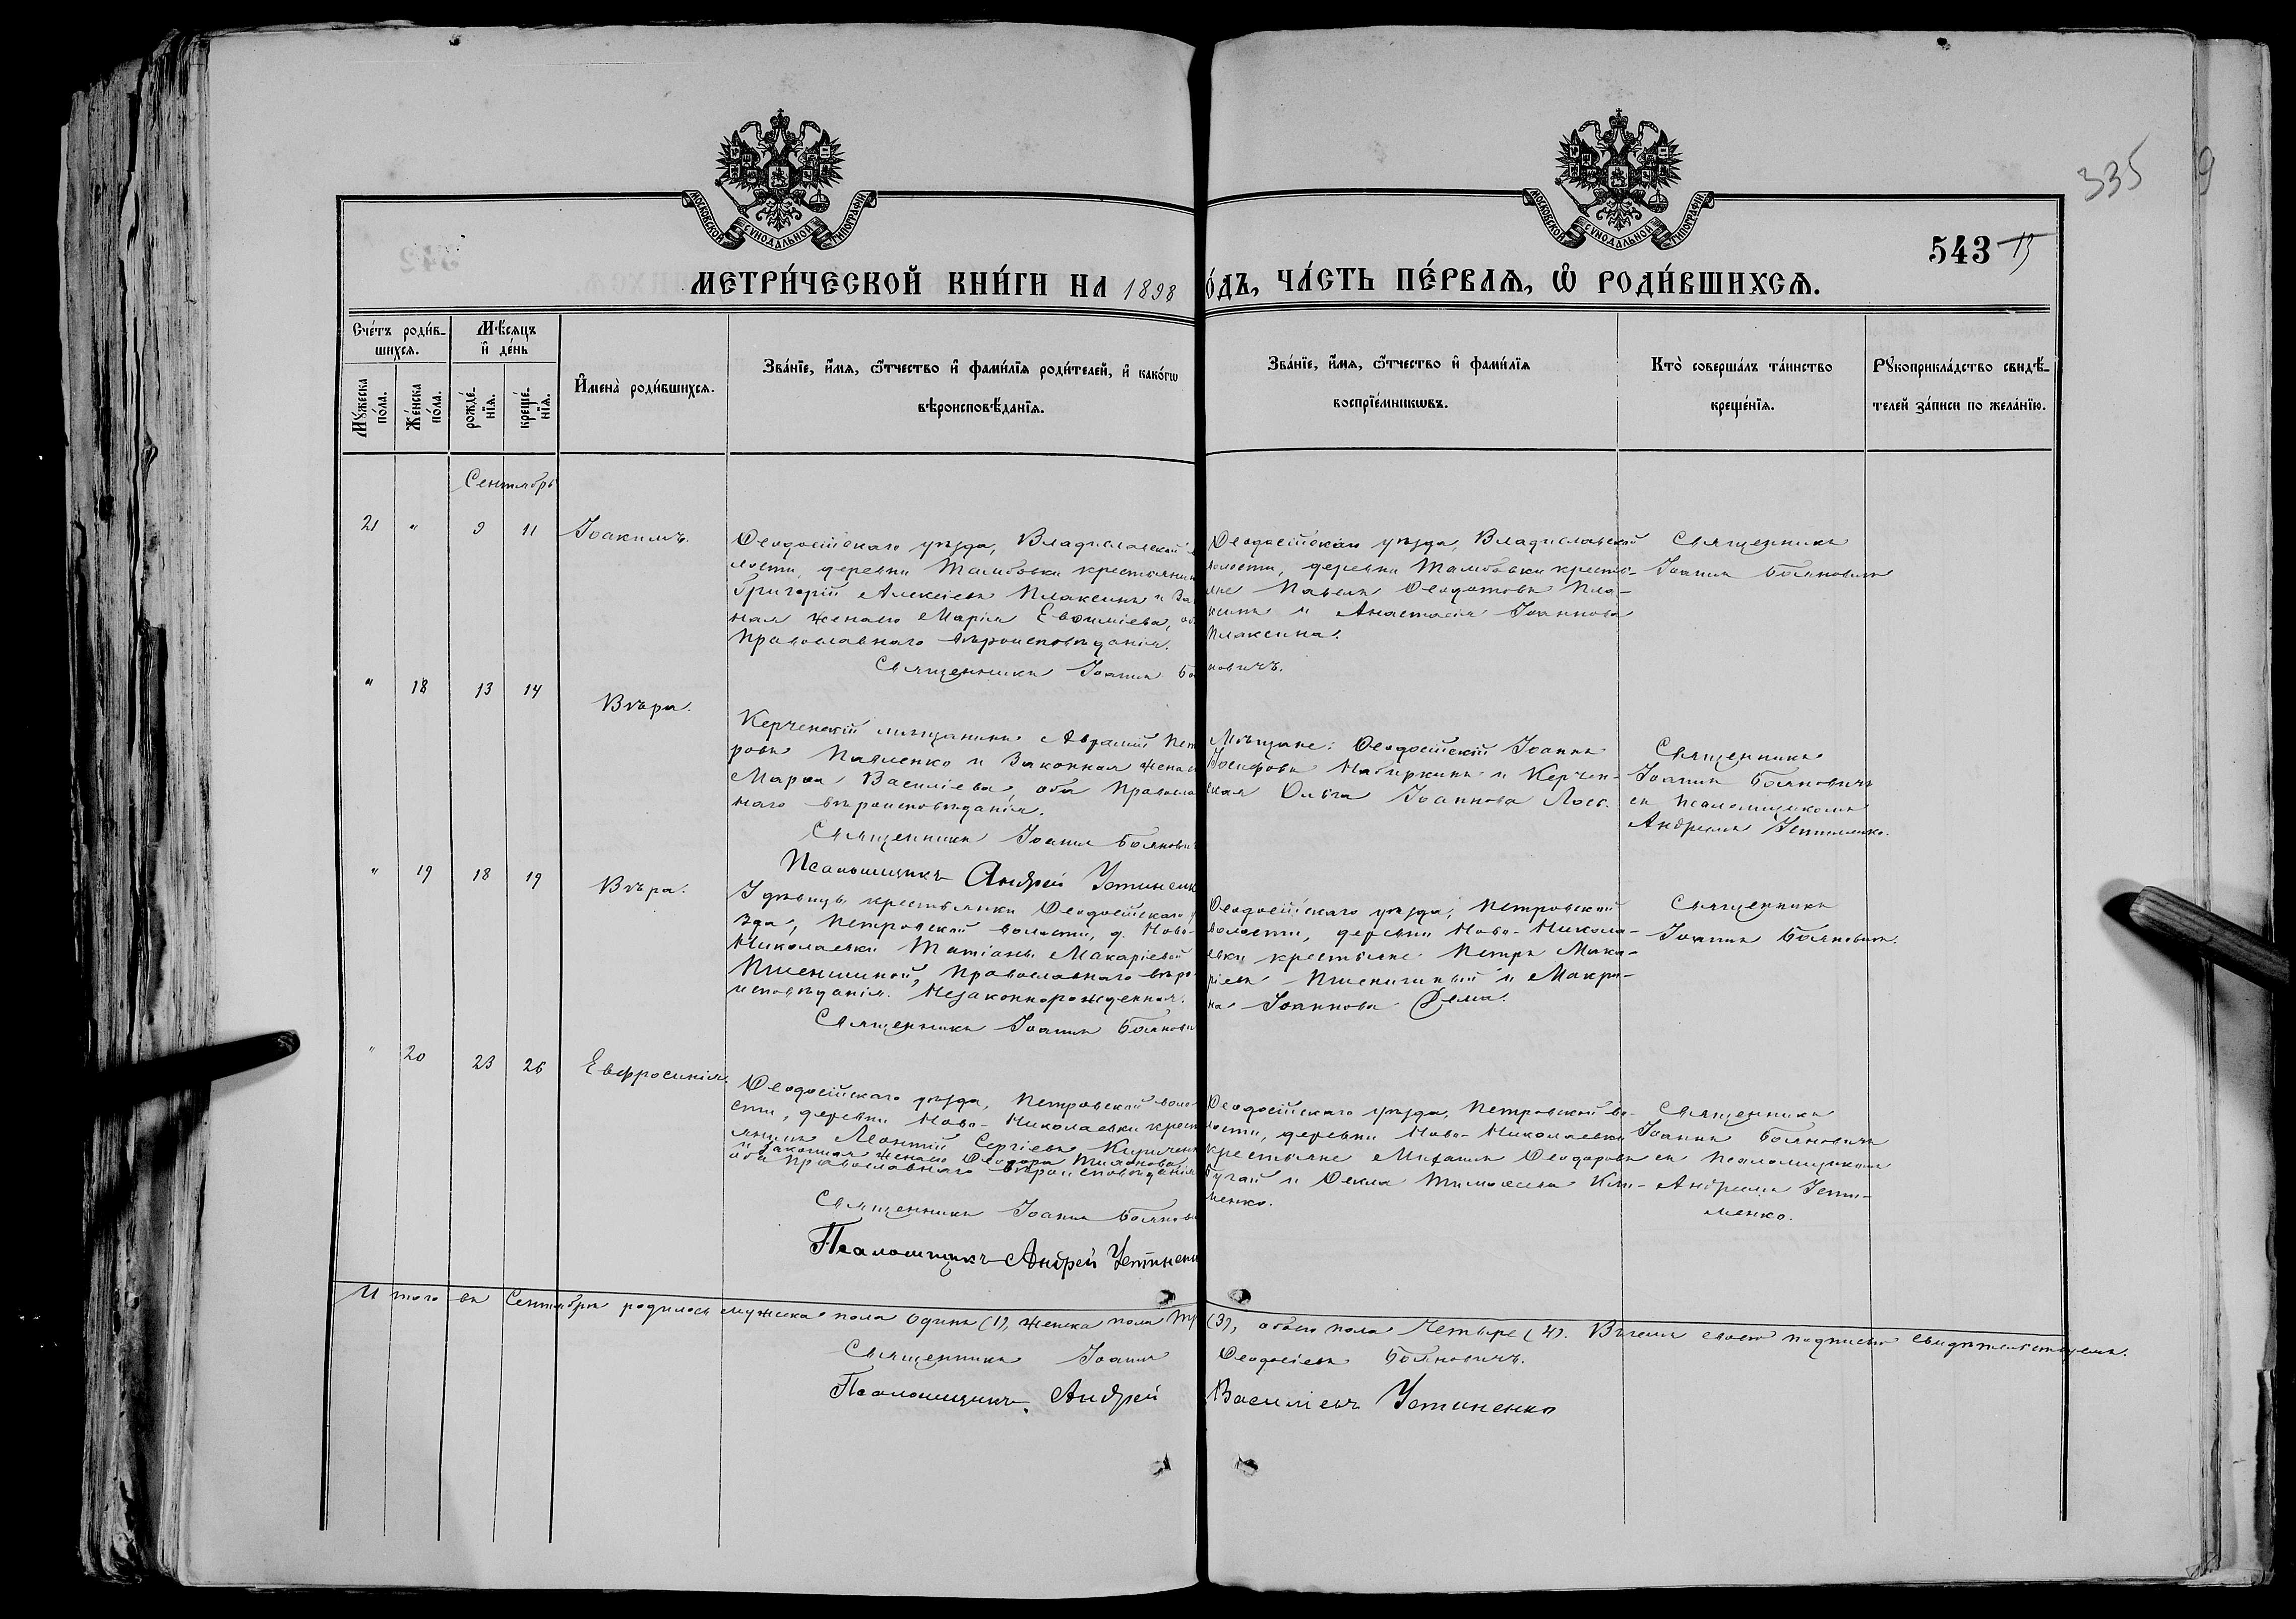 335
9
543
13
МОСКОВСКОЙ СѴНОДАЛЬНОЙ ТИПОГРАФІИ
МОСКОВСКОЙ СѴНОДАЛЬНОЙ ТИПОГРАФІИ
МЕТРИ́ЧЕСКОЙ КНИ́ГИ НА 1898
О́ДЪ, ЧА́СТЬ ПЕ́РВАѦ, Ѽ РОДИ́ВШИХСѦ.
Сче́тъ роди́в-
шихсѧ.
Мꙋ́жеска по́ла.
Же́нска по́ла.
Мѣ́сѧцъ
и҆ де́нь
рожде́-
нїѧ.
креще́-
нїѧ.
И҆мена̀ роди́вшихсѧ.
Зва́нїе, и҆́мѧ, ѻ҆́тчество и҆ фами́лїѧ роди́телей, и҆ како́гѡ
вѣроисповѣ́данїѧ.
Зва́нїе, и҆́мѧ, ѻ҆́тчество и҆ фами́лїѧ
воспрїе́мникѡвъ.
Кто̀ соверша́лъ та́инство
креще́нїѧ.
Рꙋкоприкла́дство свидѣ́-
телей за́писи по жела́нїю.
Сентябрь
21 " 9 11 Іоакимъ.
Ѳеодосійскаго уѣзда, Владиславской
лости, деревни Тамбовки крестьянинъ
Григорій Алексіевъ Плаксинъ и За
ная жена его Марія Евѳиміева, об
Православнаго вѣроисповѣданія.
Священникъ Іоаннъ Бояновичъ.
Ѳеодосійскаго уѣзда, Владиславской
волости, деревни Тамбовки кресть-
яне Павелъ Ѳеодотовъ Пла-
ксинъ и Анастасія Іоаннова
Плаксина.
Священникъ
Іоаннъ Бояновичъ
" 18 13 14 Вѣра.
Керченскій мѣщанинъ Авраамій Пет
ровъ Павленко и Законная жена е
Марѳа Василіева, оба Правосла
наго вѣроисповѣданія.
Священникъ Іоаннъ Боянович
Псаломщикъ Андрей Устименк
Мѣщане: Ѳеодосійскій Іоаннъ
Іосифовъ Набиркинъ и Керчен-
ская Ольга Іоаннова Лось.
Священникъ
Іоаннъ Бояновичъ
съ Псаломщикомъ
Андреемъ Устименко.
" 19 18 19 Вѣра.
У дѣвицы крестьянки Ѳеодосійскаго у
зда, Петровской волости, д. Ново-
Николаевки Татіаны Макаріевой
Пшеничной, Православнаго вѣро-
исповѣданія. Незаконнорожденная.
Священникъ Іоаннъ Боянови
Ѳеодосійскаго уѣзда, Петровской
волости, деревни Ново-Никола-
евки крестьяне Петръ Мака-
ріевъ Пшеничный и Макри-
на Іоаннова Дема.
Священникъ
Іоаннъ Бояновичъ.
" 20 23 26 Евфросинія.
Ѳеодосійскаго уѣзда, Петровской воло-
сти, деревни Ново-Николаевки крест
янинъ Леонтій Сергіевъ Кириченк
и Законная жена его Ѳеодора
оба Православнаго вѣроисповѣданія
Священникъ Іоаннъ Боянови
Псаломщикъ Андрей Устименк
Ѳеодосійскаго уѣзда, Петровской во-
лости, деревни Ново-Николаевки
крестьяне Михаилъ Ѳеодоровъ
Бугай и Ѳекла Тимоѳеева Кли-
менко.
Священникъ
Іоаннъ Бояновичъ
съ Псаломщикомъ
Андреемъ Усти-
менко.
Итого въ Сентябрѣ родилось мужеска пола Одинъ (1), женска пола Тр (3), обоего пола Четыре (4). В чемъ своею подписью свидѣтельствуемъ.
Священникъ Іоаннъ Ѳеодосіевъ Бояновичъ.
Псаломщикъ Андрей Василіевъ Устименко